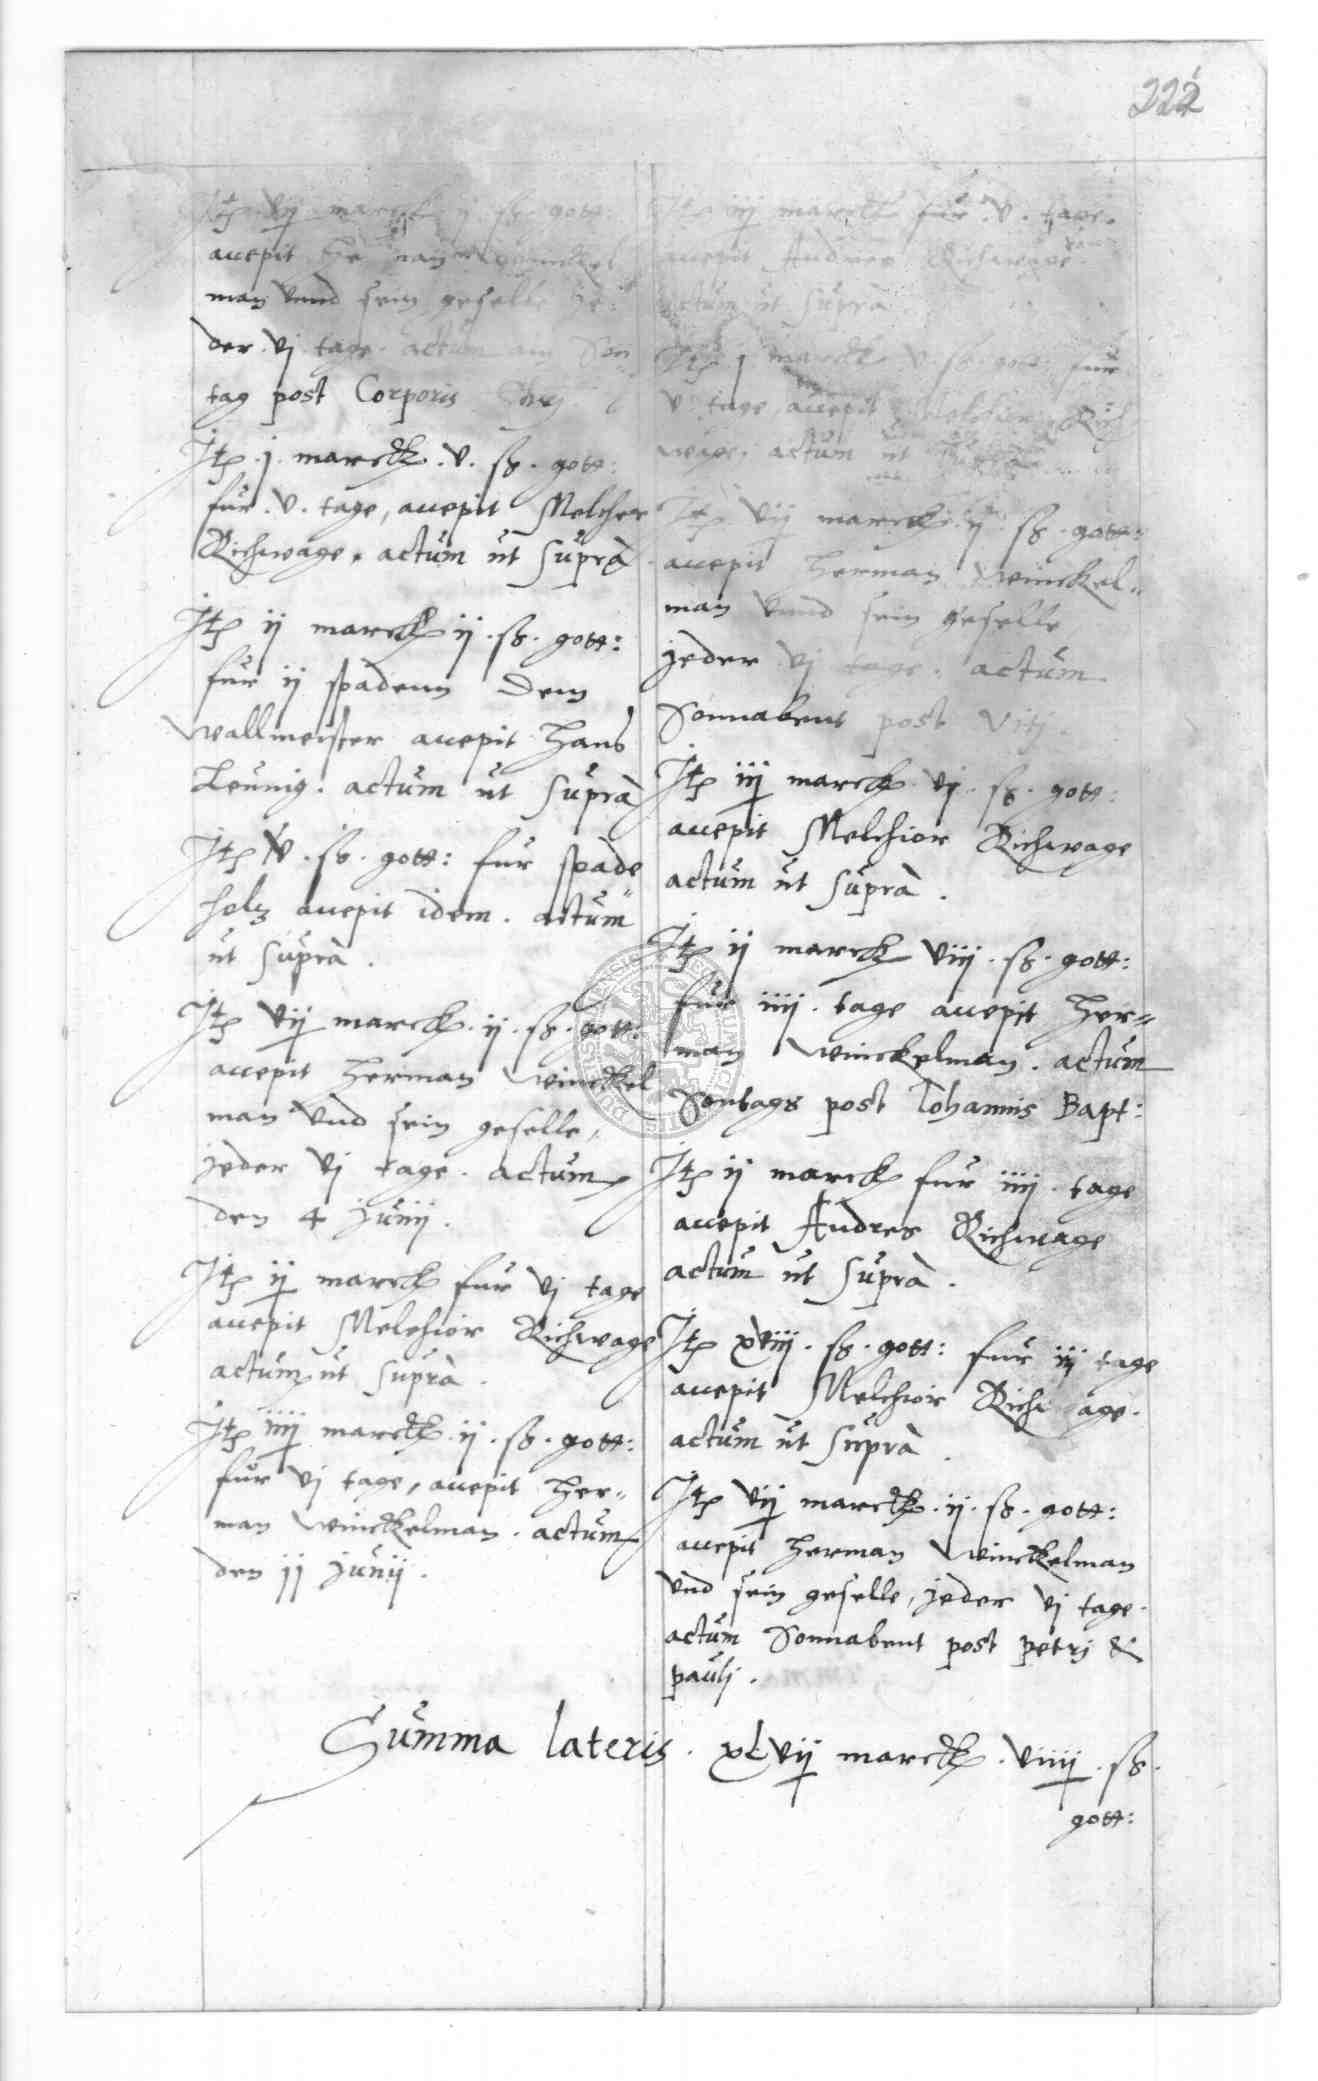 222
Jtē vij marck ij ß. gott:
accepit Herman Winckel
man vnnd sein geselle je
der vj tage. actum am Son
tag post Corporis Chrj
Jtē j marck. v. ß. gott:
fur. v. tage, accepit Melcher
Richwage. actum ut Suprà
Jtē ij marck ij. ß. gott:
fur ij spadenn dem
Wallmeister accepit Hans
Leunig. actum ut Suprà
Jtē v. ß. gott: fur spade
holtz accepit idem. actum
ut Suprà.
Jtē vij marck. ij. ß. gott:
accepit Herman Winckel
man vnd sein geselle,
jeder vj tage. actum
den 4 Junij.
Jtē ij marck fur vj tage
accepit Melchior Richwage
actum ut Suprà.
Jtē iiij marck. ij. ß. gott:
fur vj tage, accepit Her=
man Winckelman. actum
den jj Junij.
Jtē iij marck fur. v. tage.
accepit Andres Richwage
actum ut Suprà
Jtē j marck v. ß. gott: fur
v. tage accepit Melchior Rich
wage. actum ut Suprà
Jtē vij marck. ij. ß. gott:
accepit Herman Winckel=
man vnnd sein geselle
jeder vj tage. actum
Sonnabent post Vitj.
Jtē iij marck vj. ß. gott:
accepit Melchior Richwage
actum ut Suprà.
Jtē ij marck viij. ß. gott:
fur iiij. tage accepit Her=
man Winckelman. actum
Sontags post Johannis Bapt:
Jtē ij marck fur iiij. tage
accepit Andres Richwage
actum ut Suprà.
Jtē xviij. ß. gott: fur iij tage
accepit Melchior Rich age.
actum ut Suprà.
Jtē vij marck. ij. ß. gott:
accepit Herman Winckelman
vnd sein geselle, jeder vj tage.
actum Sonnabent post petrj &
paulj.
Summa lateris. xLvij marck. viiij. ß.
gott: